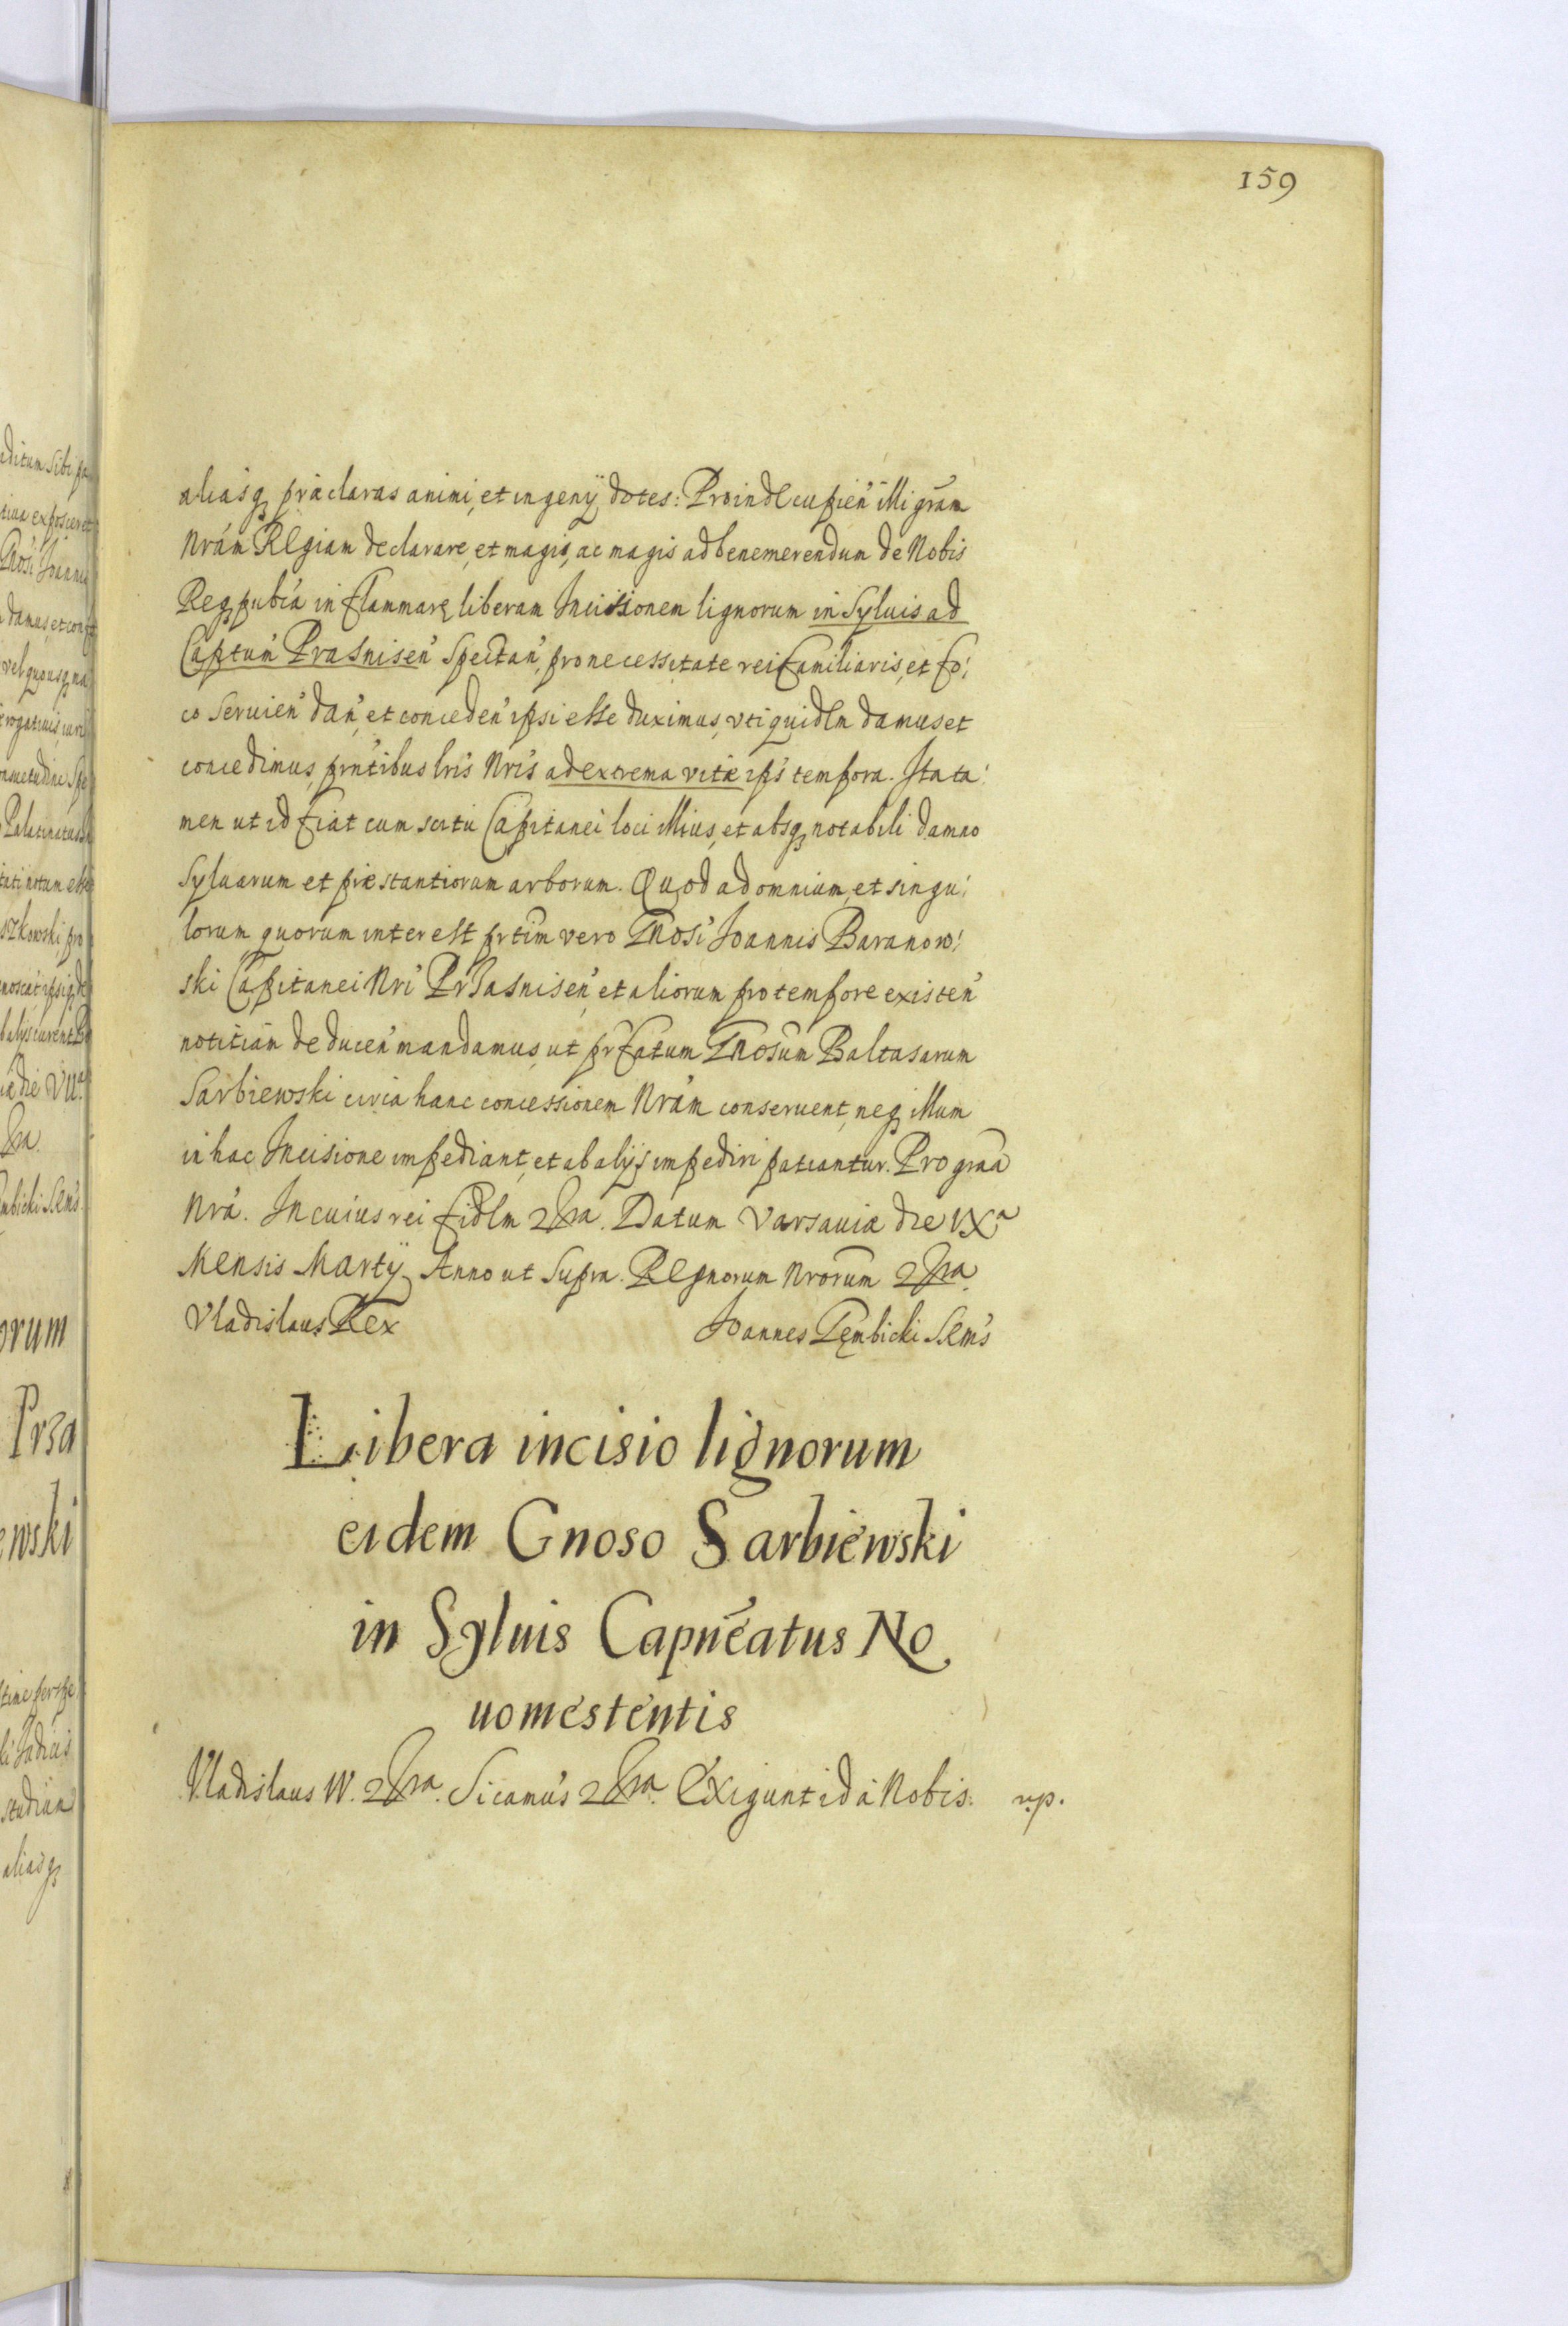 159
aliasq̨ præclaras animi, et ingenÿ dotes: Proinde cupien̄ illi grãm
Nrám Regiam declarare, et magis, ac magis ad benemerendum de Nobis
Req̨ pubćá inflammare liberam Incisionem lignorum in Syluis ad
Captum̄ Prasnisen̄ Spectan̄, pro necessitate rei familiaris, et fo:
co Seruien̄ dan̄, et conceden̄ ipsi esse duximus, vti quidem damus et
concedimus, pr̄ntibus lr̄is Nr̄is ad extrema vitæ ips̄ tempora. Ita ta:
men ut id fiat cum scitu Capitanei loci illius, et absq̨ notabili damno
Syluarum et præstantiorum arborum. Quod ad omnium, et singu:
lorum quorum interest pr̄tim vero Gnosi Joannis Baranow:
ski Capitanei Nri Przasnisen̄, et aliorum pro tempore existen̄
notitiam deducen̄ mandamus, ut prfatum Gnosum Baltasarum
Sarbiewski circa hanc concessionem Nrám conseruent, neq̨ illum
in hac Incisione impediant, et ab alijs impediri patiantur. Pro graã
Nrá. In cuius rei fidem 2ra. Datum Varsauiæ die IXª
Mensis Martÿ Anno ut Supra. Regnorum Nrorum 2ra.
Vladislaus Rex
Joannes Gębicki Sem̄s
Libera incisio lignorum
eidem Gnoso Sarbiewski
in Syluis Capnéatus No
uomestentis
Vladislaus IV. 2ra. Sicamus 2ra. Exigunt id à Nobis. up.